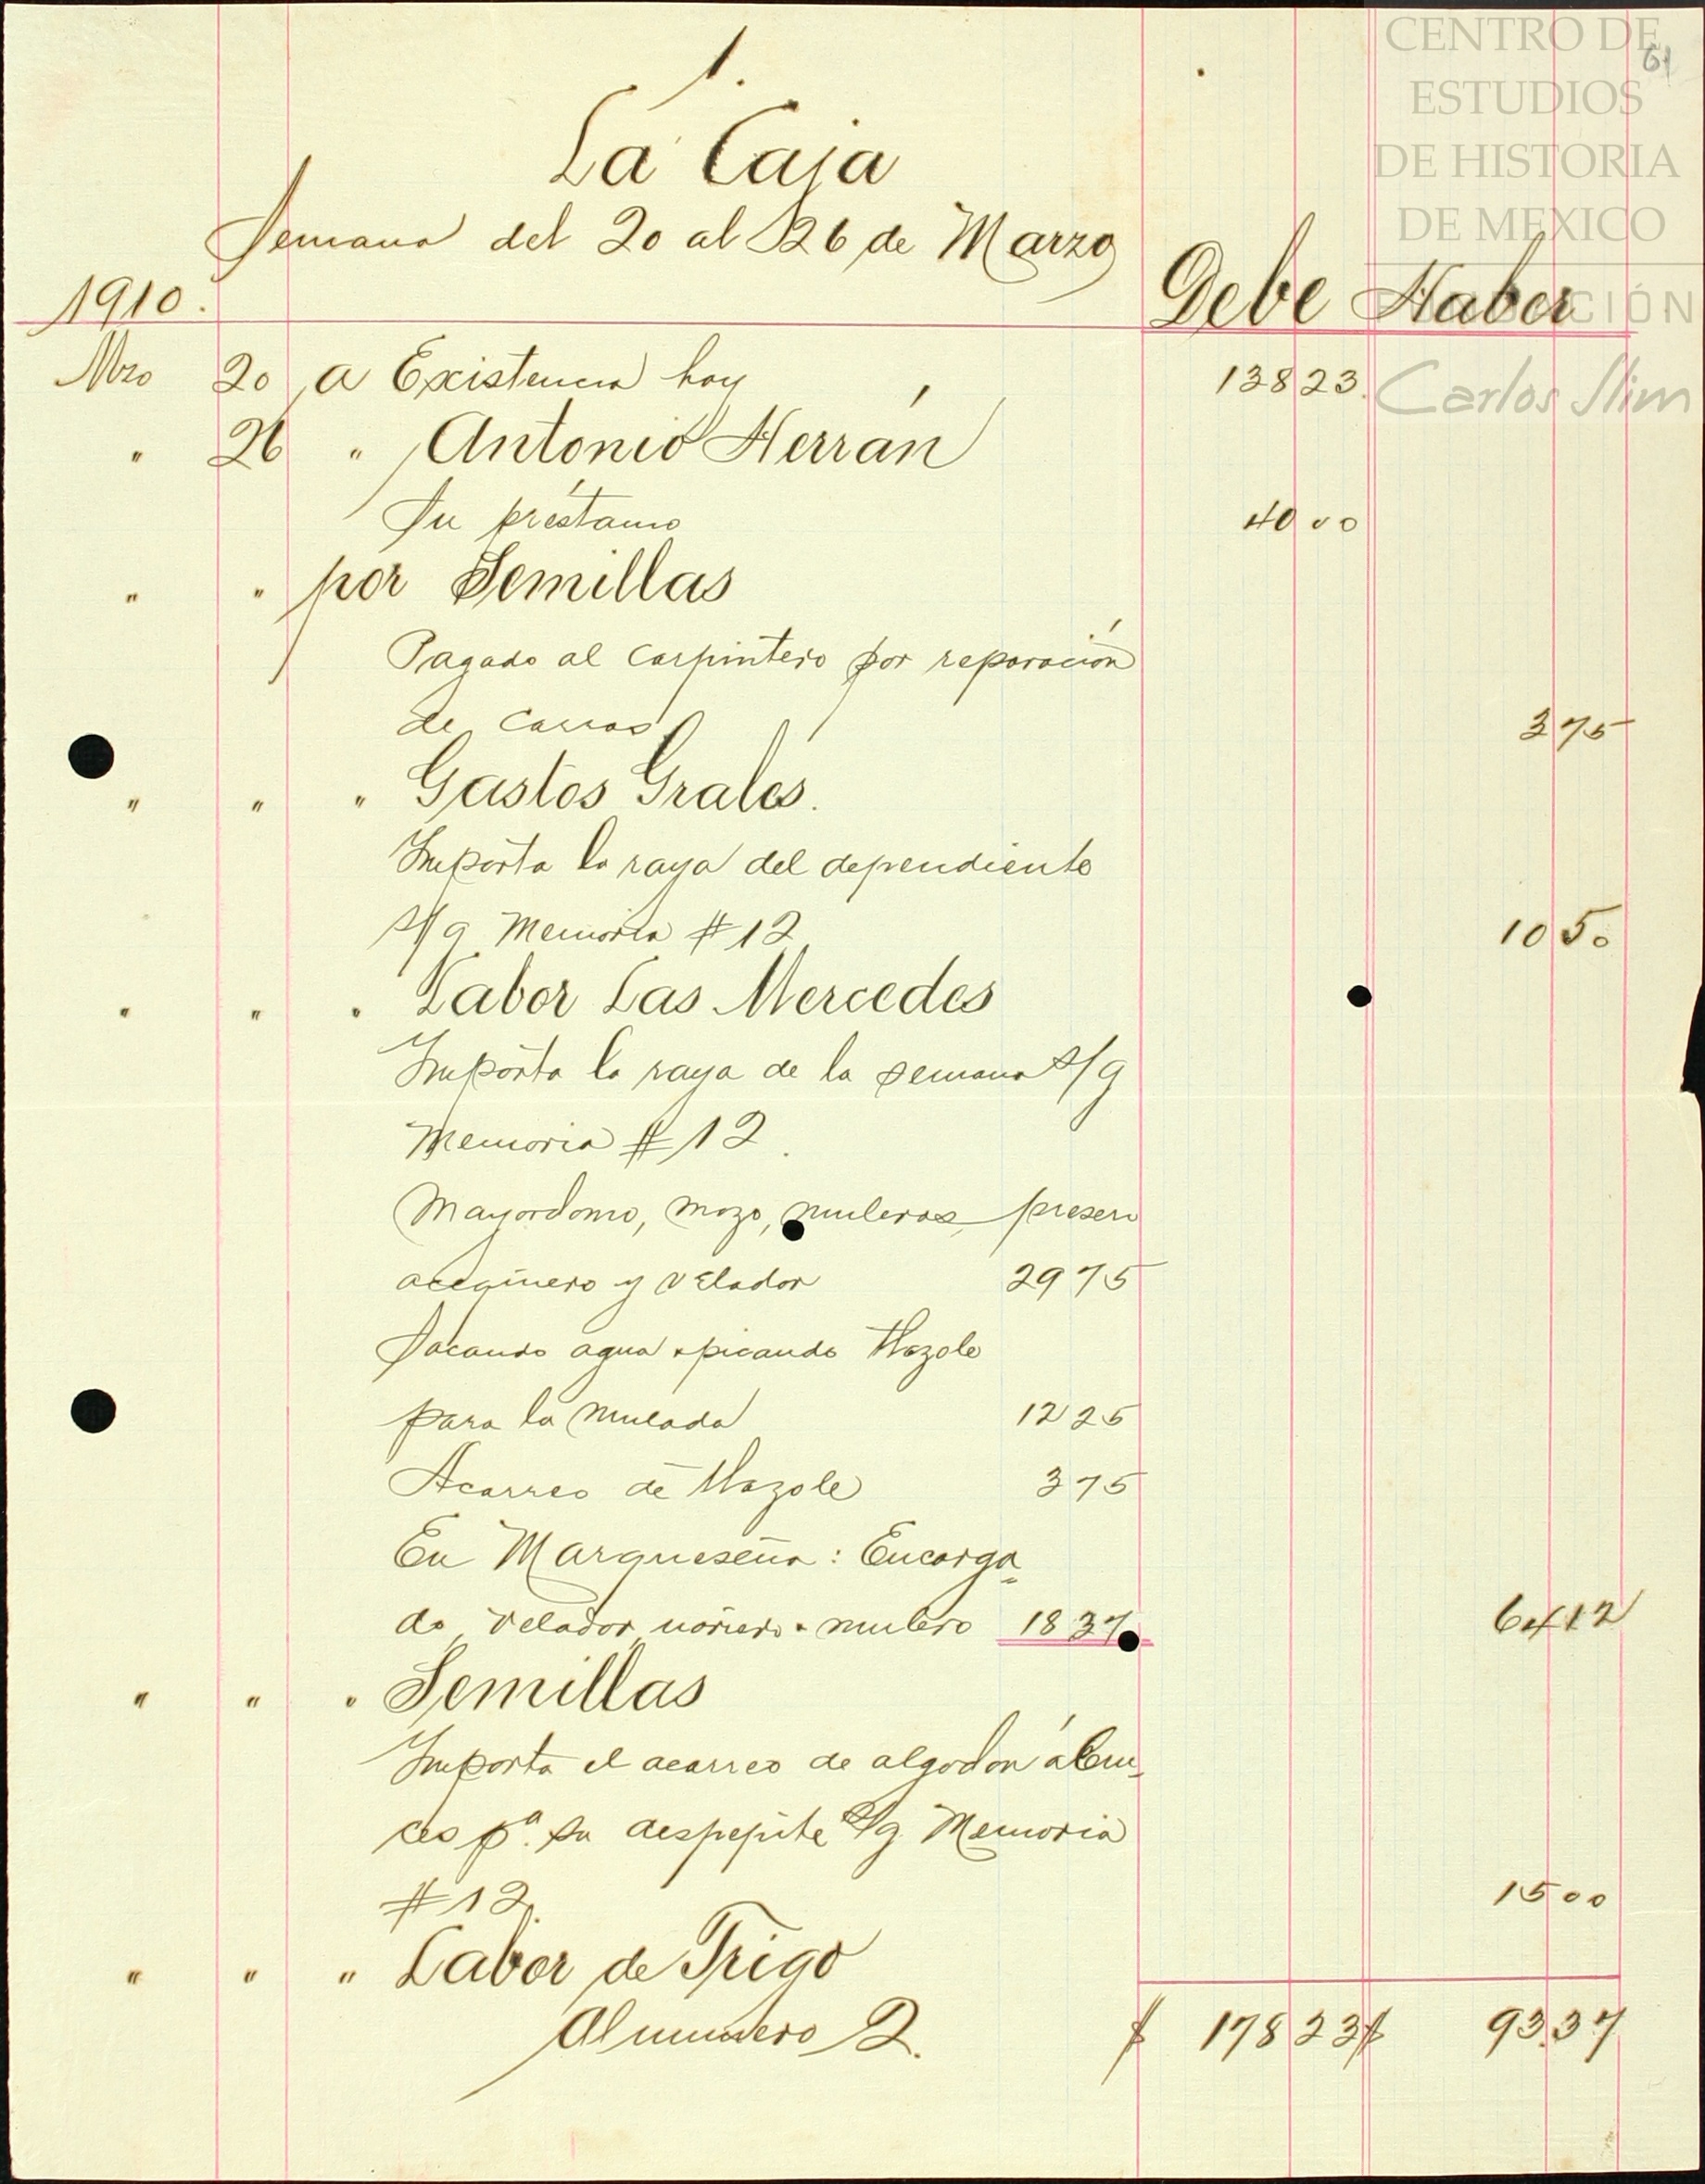 1.
61
CENTRO DE
ESTUDIOS
DE HISTORIA
DE MEXICO
FUNDACIÓN
Carlos Slim
La Caja
Semana del 20 al 26 de Marzo
1910. Debe Haber
Mzo 20 a Existencia hoy 138 23.
" 26 " Antonio Herrán
Su préstamo 40 00
" " por Semillas
Pagado al carpintero por reparación
de carros 3 75
" " " Gastos Grales.
Importa la raya del dependiente
s/g Memoria #12 10 50
" " " Labor Las Mercedes
Importa la raya de la semana s/g
Memoria #12.
Mayordomo, mozo, muleros, presero
acequiero y velador 29 75
Sacando agua y picando tlazole
para la mulada 12 25
Acarreo de tlazole 3 75
En Marqueseña: Encarga
do, velador, noriero y mulero 18 37 64 12
" " " Semillas
Importa el acarreo de algodon á Cru-
ces pa. su despepite s/g Memoria
#12. 15 00
" " " Labor de Trigo
Al numero 2. $ 178 23 $ 93.37